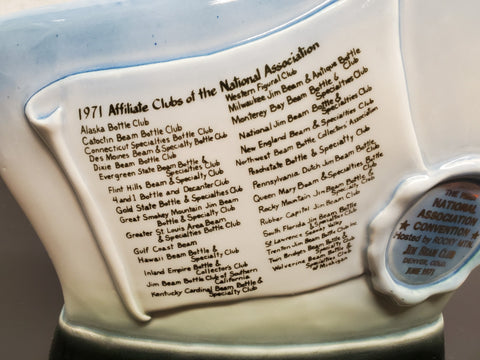 1971 Affiliate Clubs of the National Association
Alaska Bottle Club
Catoctin Beam Bottle Club
Connecticut Specialties Bottle Club
Des Moines Beam & Specialty Bottle Club
Dixie Beam Bottle Club
Evergreen State Beam Bottle &
Specialties Club
Flint Hills Beam & Specialty Club
4 and 1 Bottle and Decanter Club
Gold State Bottle & Specialties Club
Great Smokey Mountain Jim Beam
Bottle & Specialty Club
Greater St Louis Area Beam
& Specialties Bottle Club
Gulf Coast Beam
Hawaii Beam Bottle &
Specialty Club
Inland Empire Bottle &
Collector's Club
Jim Beam Bottle Club of Southern
California
Kentucky Cardinal Beam Bottle &
Specialty Club
Western Figural Club
Milwaukee Jim Beam & Antique Bottle
Club
Monterey Bay Beam Bottle &
Specialties Club
National Jim Beam Bottle &
Specialties Club
New England Beam & Specialties Club
Northwest Beam Bottle Collectors Association
Rochstate Bottle & Specialty Club
Pennsylvania Dutch Jim Beam Bottle
Club
Queen Mary Beam & Specialties Bottle
Club
Rocky Mountain Jim Beam Bottle &
Specialty Club
Rubber Capitol Jim Beam Club
South Florida Jim Beam Bottle
& Specialties Club
St Lawrence Seaway Valley
Trenton Jim Beam Bottle Club Inc
Twin Bridges Beam Bottle &
Specialties Club
Wolverine Beam Bottle &
Specialties Club
of Michigan
THE First
NATIONAL
ASSOCIATION
CONVENTION
Hosted by ROCKY MTN.
JIM BEAM CLUB
DENVER, COLO.
JUNE 1971